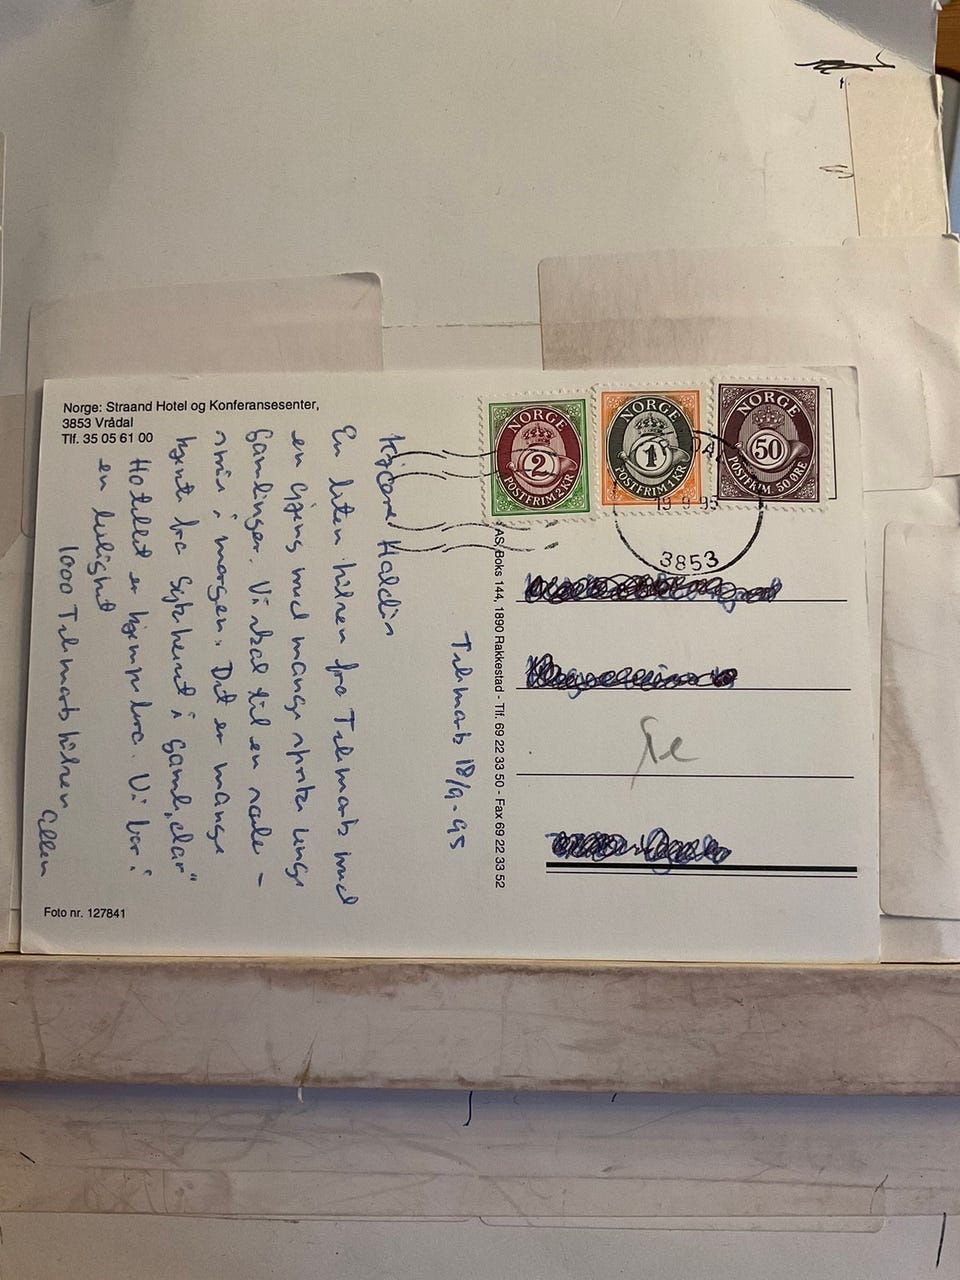 Norge: Straand Hotel og Konferansesenter,
3853 Vrådal
Tlf. 35 05 61 00
NORGE
2
POSTFRIM. 2 KR
NORGE
1
POSTFRIM. 1 KR
NORGE
50
POSTFRIM. 50 ØRE
19 9 95
3853
Telemark 18/9-95
Kjære
En liten hilsen fra Telemark med
en gjeng med mange spreke unge
Samlinger. Vi skal til en
i morgen. Det er mange
kjente fra i gamle "dar"
Hotellet er kjempe bra. Vi bor i
en leilighet
1000 Telemark hilsen
Ellen
AS/ Boks 144, 1890 Rakkestad - Tlf. 69 22 33 50 - Fax 69 22 33 52
Foto nr. 127841